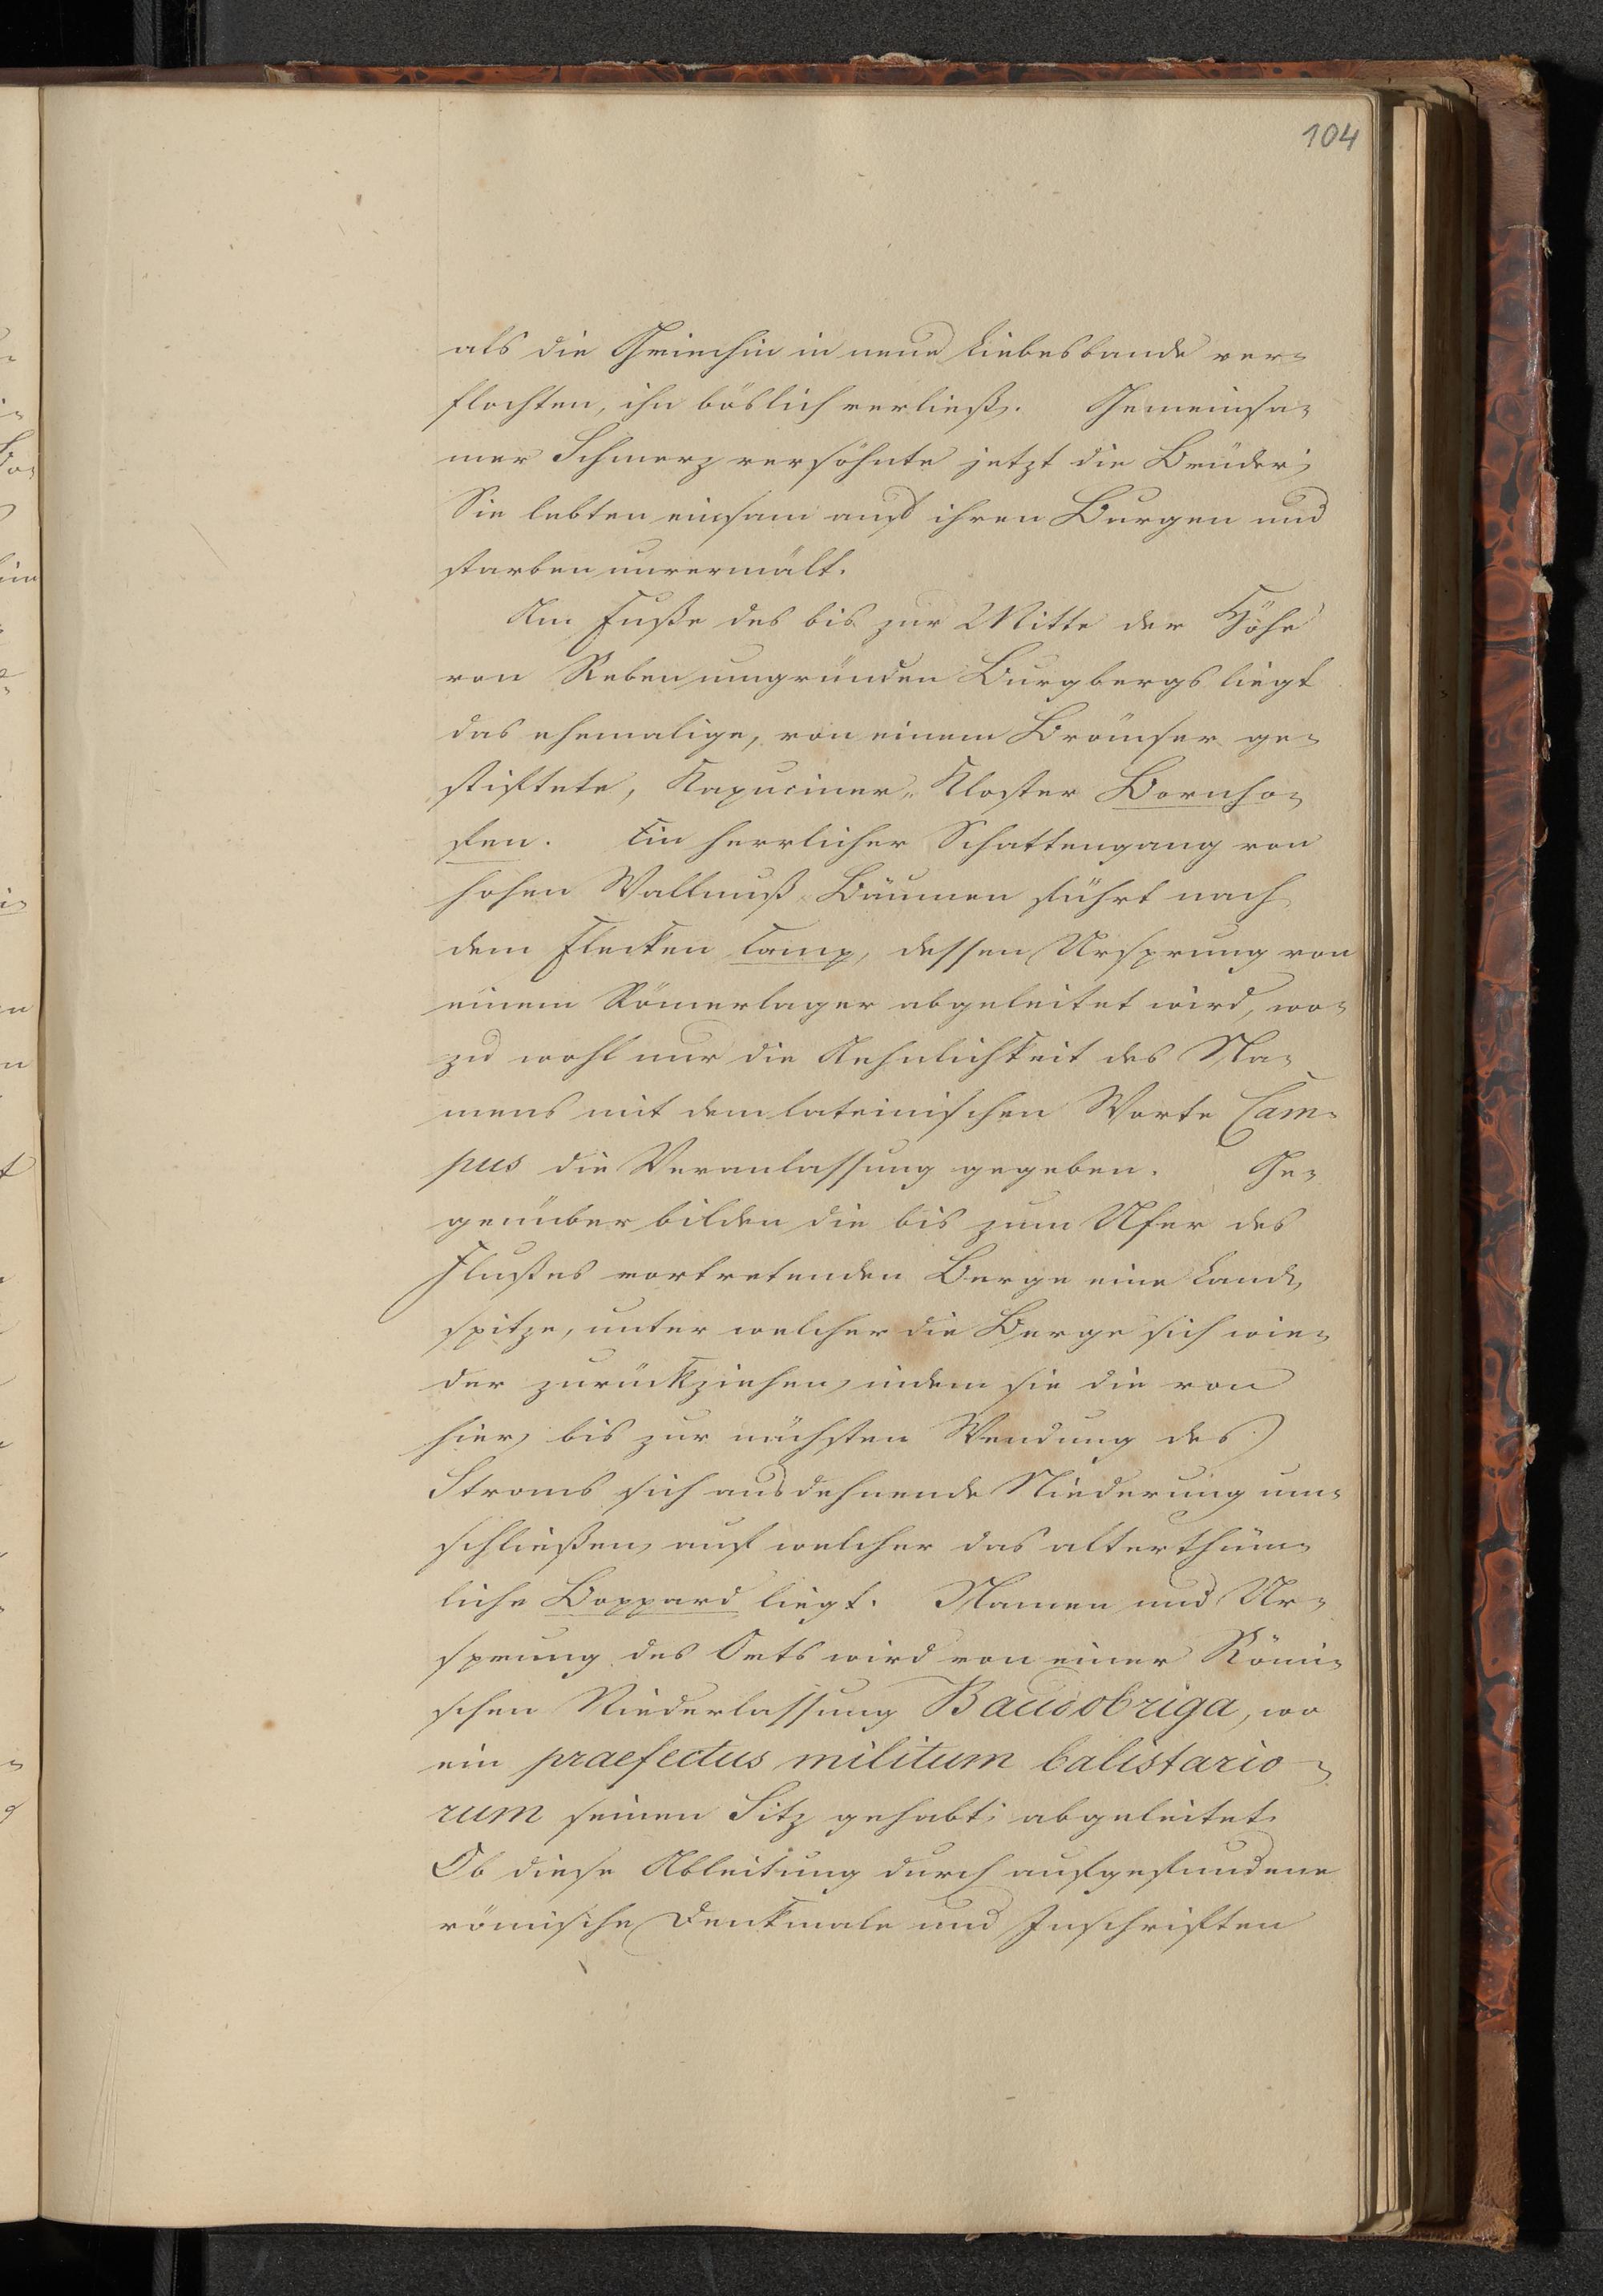 104
als die Griechin in neue Liebesbande ver-
flochten, ihn böslich verließ. Gemeinsa-
mer Schmerz versöhnte jetzt die Brüder;
Sie lebten einsam auf ihren Burgen und
starben unvermält.
Am Fuße des bis zur Mitte der Höhe
von Reben umgründen Burgbergs liegt
das ehemalige, von einem Brömser ge-
stiftete, Kapuciner-Kloster Bornho-
fen. Ein herrlicher Schattengang von
hohen Wallnuß Bäumen führt nach
dem Flecken Camp, dessen Ursprung von
einem Römerlager abgeleitet wird, wo-
zu wohl nur die Aehnlichkeit des Na-
mens mit dem lateinischen Worte Cam-
pus die Veranlassung gegeben. Ge-
genüber bilden die bis zum Ufer des
Flußes vortretenden Berge eine Land-
spitze, unter welcher die Berge sich wie-
der zurückziehen, indem sie die von
hier, bis zur nächsten Wendung des
Stroms sich ausdehnende Niederung um-
schließen, auf welcher das alterthüm-
liche Boppard liegt. Namen und Ur-
sprung des Orts wird von einer Römi-
schen Niederlassung Baudobriga, wo
ein praefectus militum balistario-
rum seinen Sitz gehabt, abgeleitet.
Ob diese Ableitung durch aufgefundene
römische Denkmale und Inschriften